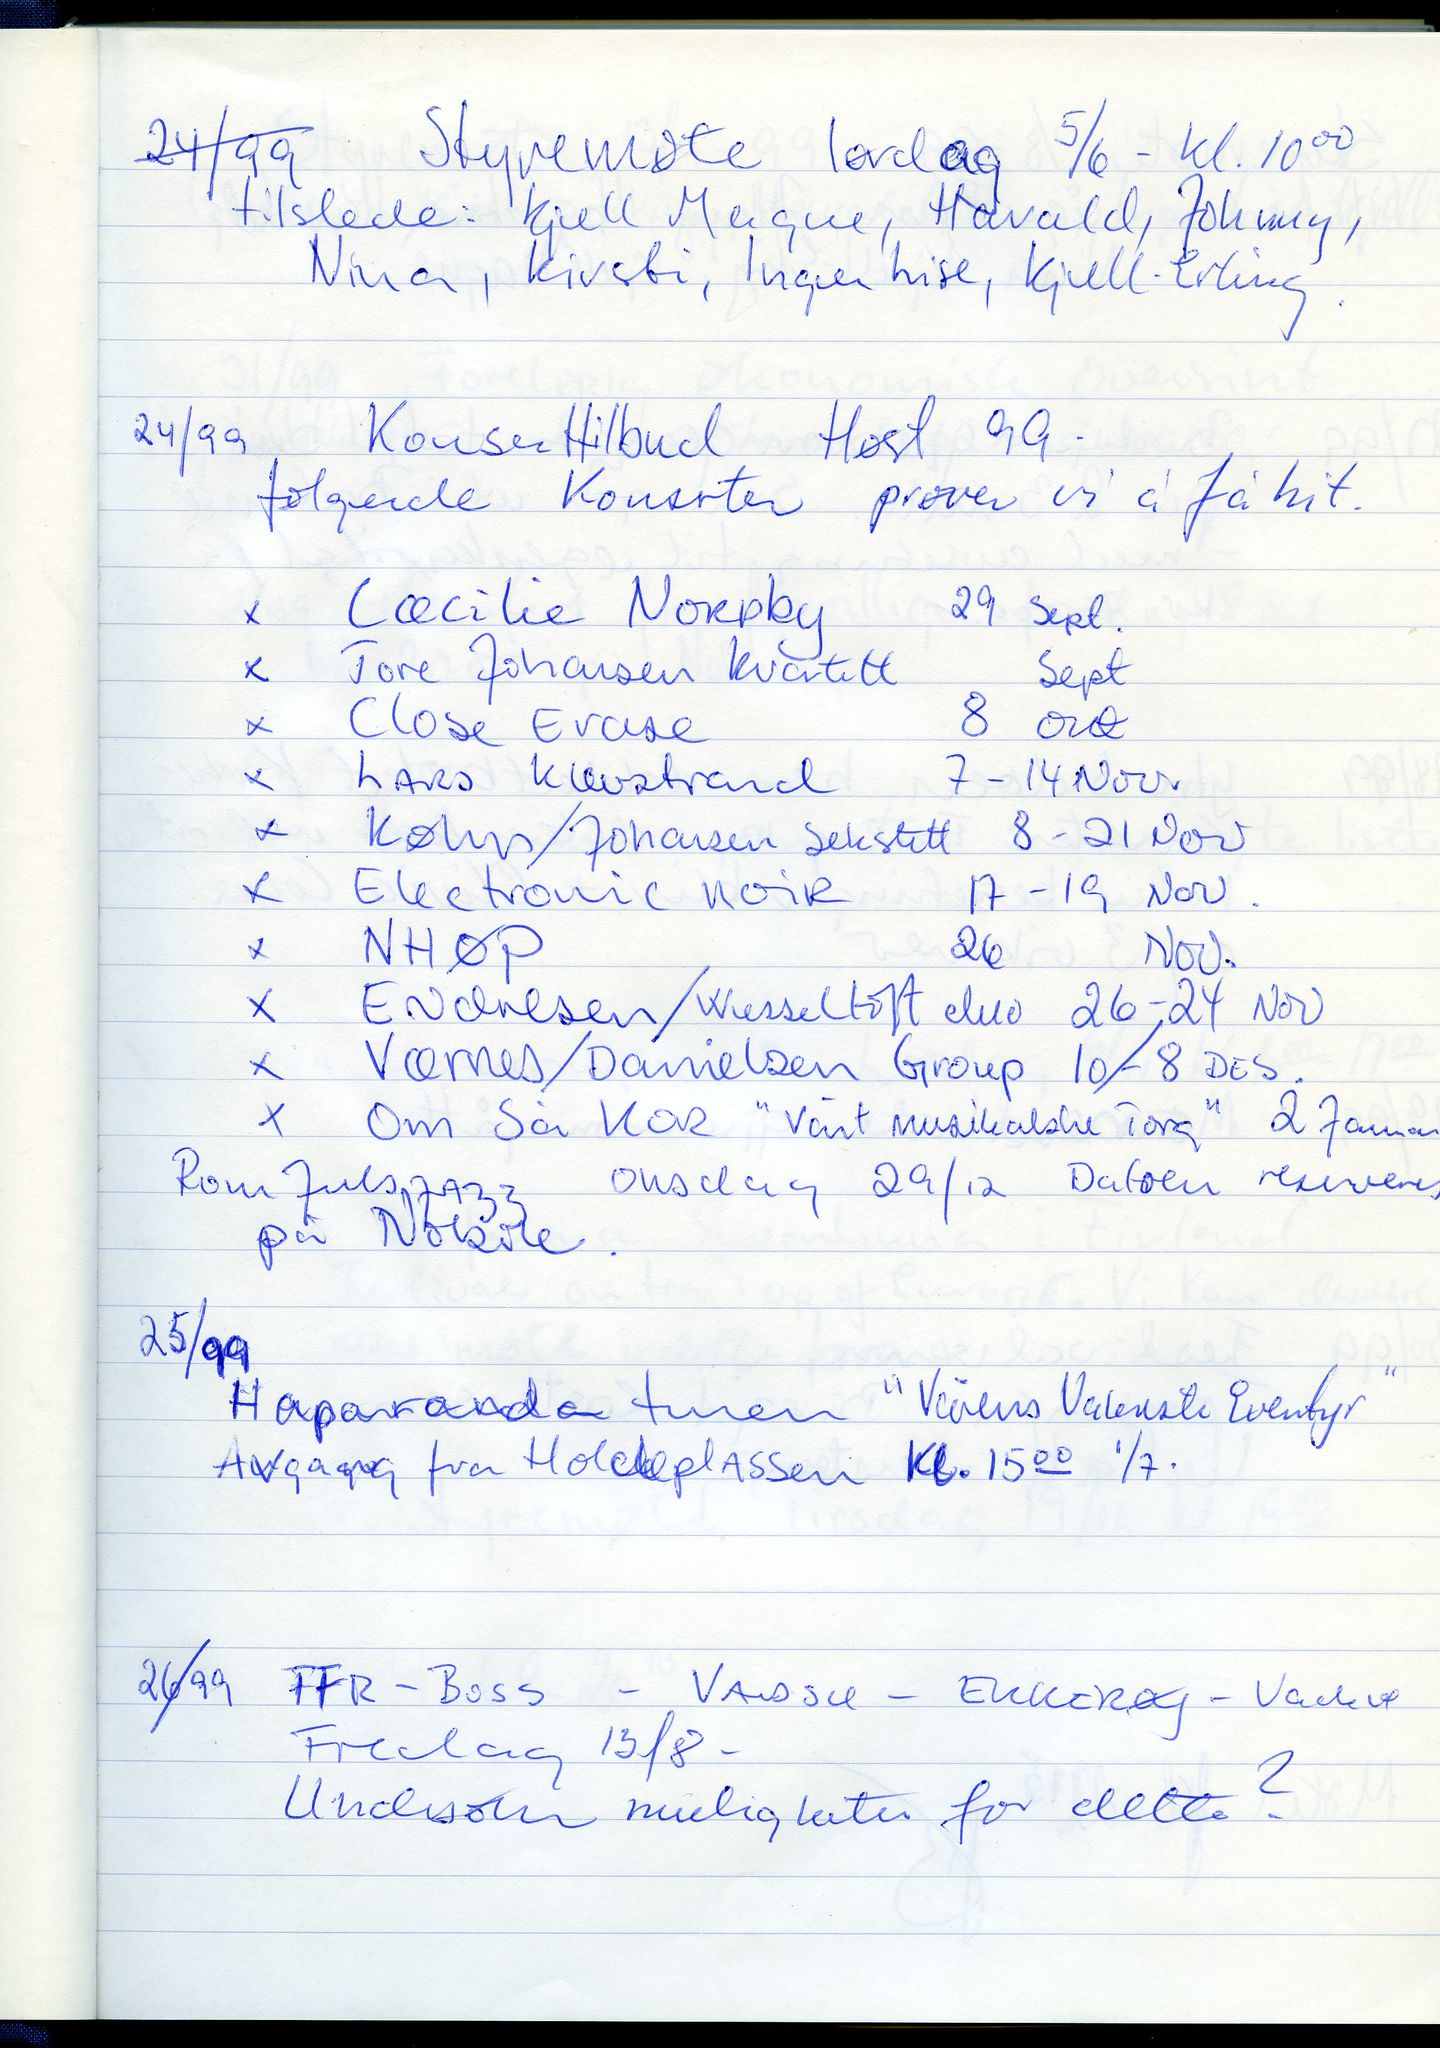 24/99 Styremøte lørdag 5/6 - kl. 10 00
tilstede: Kjell Magne, Harald, Johnny,
Nina, Kirsti, Inger Lise, Kjell-Erling.
24/99 Konserttilbud Høst 99.
følgende Konserter prøver vi å få hit.
x Cæcilie Norby 29 Sept.
x Tore Johansen Kvartett Sept
x Close Erase 8 Okt
x Lars Klevstrand 7-14 Nov.
x Køhn/Johansen Sekstett 8-21 Nov
x Electronic Noir 17-19 Nov.
x NHØP 26 Nov.
x Endresen/Wesseltoft duo 26-24 Nov
x Værnes/Danielsen Group 10/-8 DES.
x Om Så KOR "Vårt musikalske Torg" 2 Januar
RomJulsJAZZ onsdag 29/12 Datoen reserveres
på Nolsøe.
25/99
Haparanda turen "Vårens Vakreste Eventyr"
Avgang fra Holdeplassen Kl. 15 00 1/7.
26/99 FFR - Boss - VADSØ - EKKERØY - Vadsø
Fredag 13/8 -
Undersøker muligheter for dette?